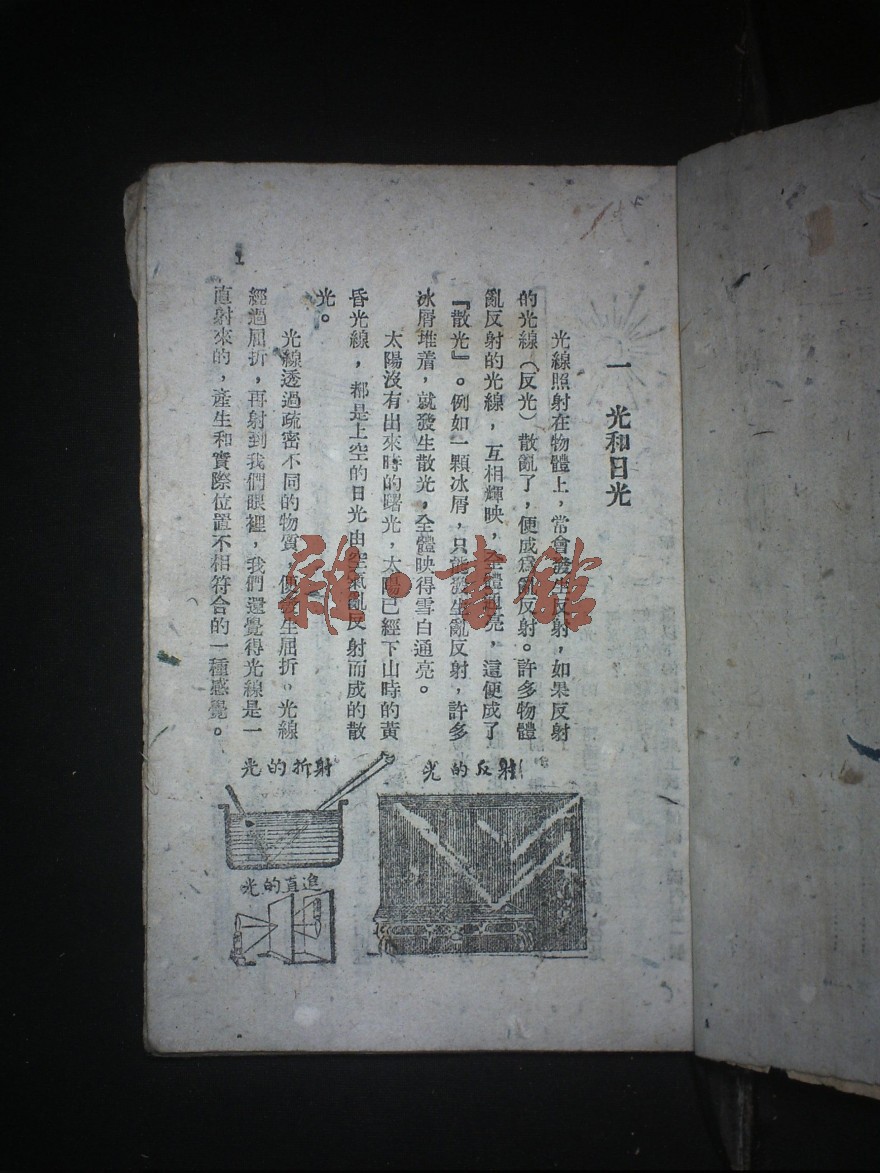 一 光和日光
光線照射在物體上，常會發生反射，如果反射
的光線（反光）散亂了，便成為亂反射。許多物體
亂反射的光線，互相輝映，全體通亮，這便成了
『散光』。例如一顆冰屑，只能發生亂反射，許多
冰屑堆着，就發生散光，全體映得雪白通亮。
太陽沒有出來時的曙光，太陽已經下山時的黃
昏光線，都是上空的日光由空氣亂反射而成的散
光。
光線透過疏密不同的物質，便發生屈折。光線
經過屈折，再射到我們眼裡，我們還覺得光線是一
直射來的，產生和實際位置不相符合的一種感覺。
光的反射
光的折射
光的直進
1
雜·書館